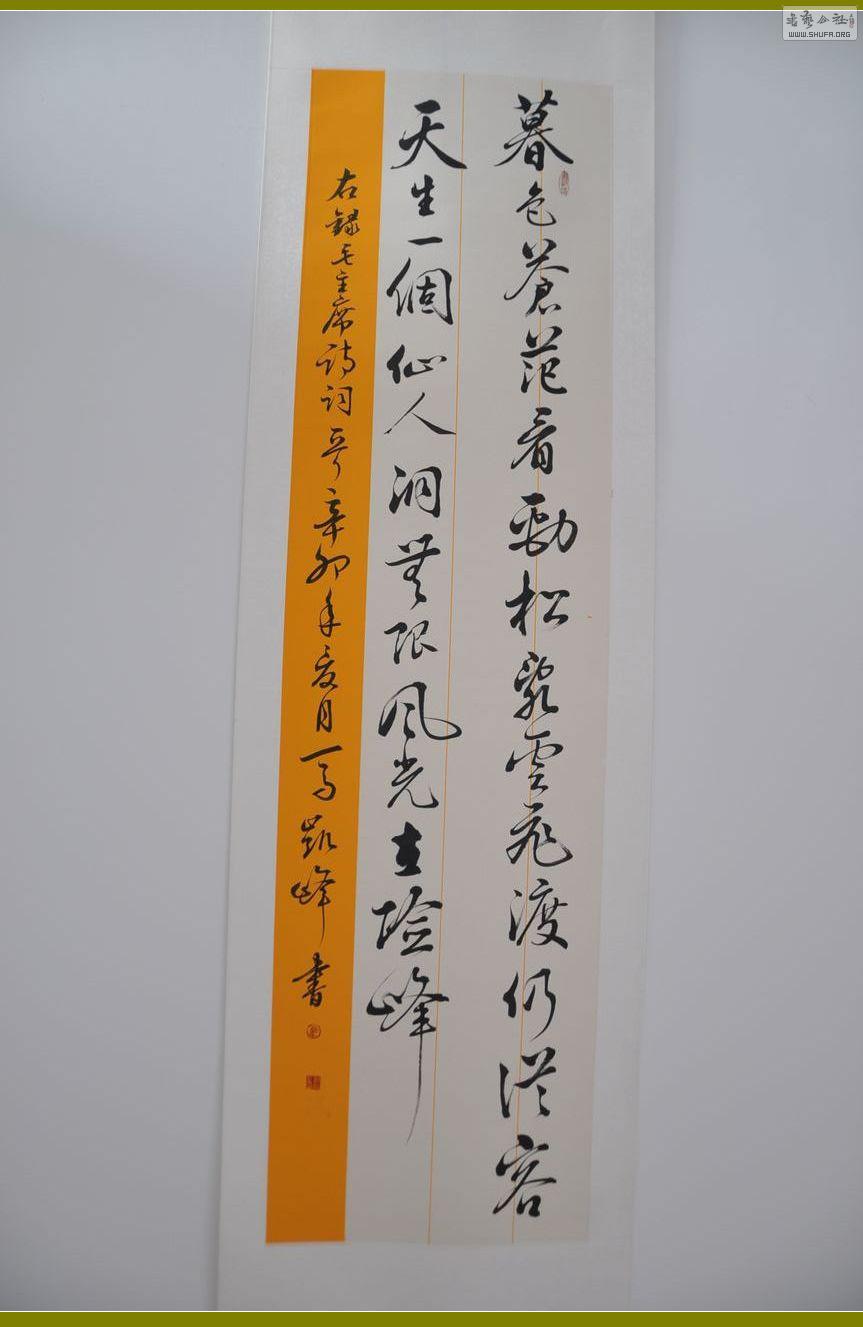 暮色蒼茫看勁松亂雲飛渡仍從容
天生一個仙人洞無限風光在險峰
右錄毛主席詩詞一首辛卯年夏月凱峰書
书艺公社
WWW.SHUFA.ORG